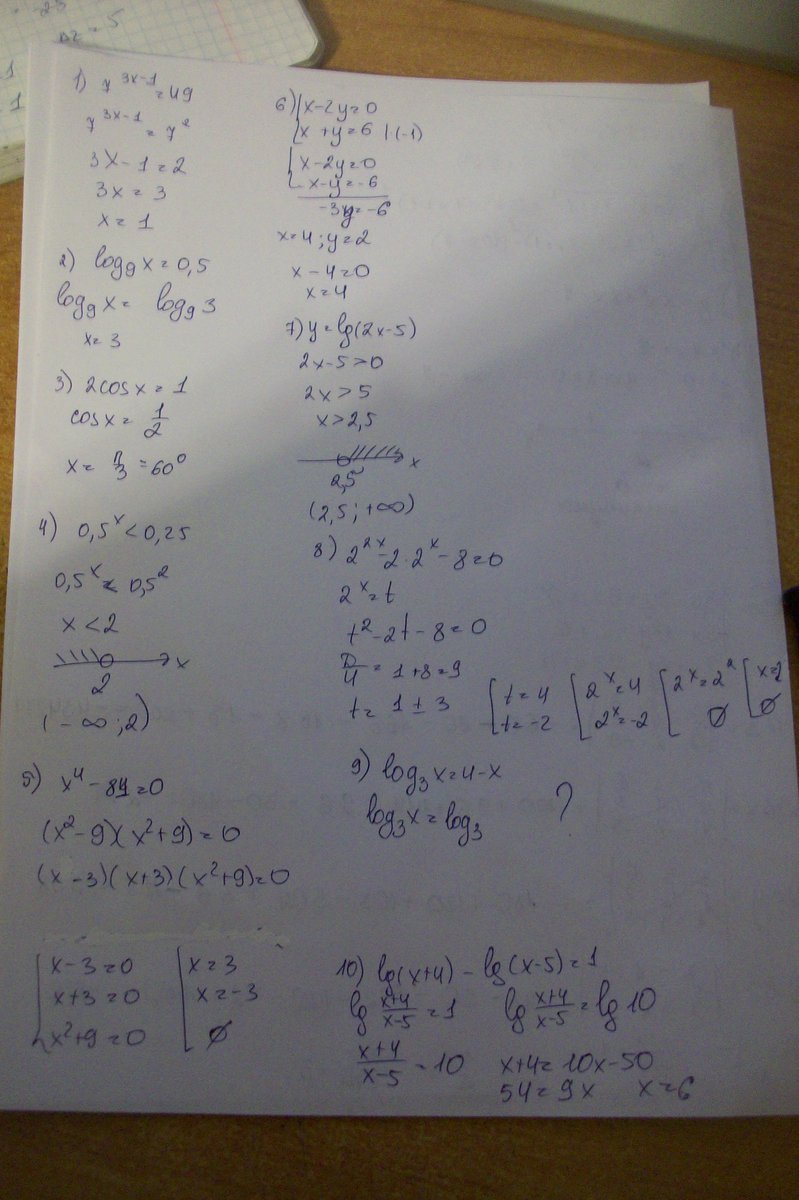 -25
= 5
1
-1
1) 7^(3x-1) = 49
7^(3x-1) = 7^2
3x-1=2
3x = 3
x = 1
2) log₉x=0,5
log₉x= log₉3
x=3
3) 2cosx=1
cosx= 1/2
x= π/3 =60⁰
4) 0,5^x<0,25
0,5^x< 0,5^2
x<2
x
2
(-∞;2)
5) x⁴-81=0
(x²-9)(x²+9)=0
(x-3)(x+3)(x²+9)=0
[x-3=0 [x=3
x+3=0 x=-3
x²+9=0 ∅
6) {x-2y=0
{x+y=6 |(-1)
{x-2y=0
-x-y=-6
-3y=-6
x=4; y=2
x-4=0
x=4
7) y=lg(2x-5)
2x-5>0
2x>5
x>2,5
x
2,5
(2,5;+∞)
8) 2^(2x)-2·2^x-8=0
2^x=t
t²-2t-8=0
D/4=1+8=9
t= 1±3 [t=4 [2^x=4 [2^x=2^2 [x=2
t=-2 2^x=-2 ∅ ∅
9) log₃x=4-x
log₃x=log₃ ?
10) lg(x+4)-lg(x-5)=1
lg (x+4)/(x-5)=1 lg (x+4)/(x-5)=lg10
(x+4)/(x-5)=10 x+4=10x-50
54=9x x=6